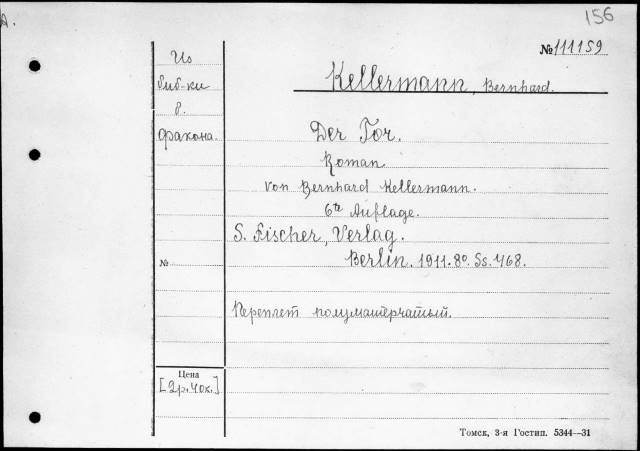 156
А.
№ 111159
Из
биб-ки
в.
факона.
Kellermann, Bernhard.
Der Tor.
Roman
von Bernhard Kellermann.
6te Auflage.
S. Fischer, Verlag.
Berlin. 1911. 8º. Ss. 468.
№
Переплет полуматерчатый.
Цена
[2р.40к.]
Томск, 3-я Гостип. 5344—31